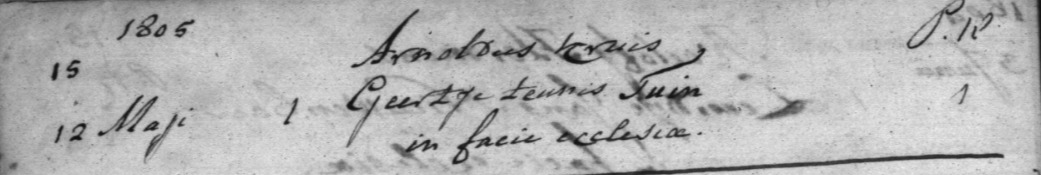 1805 P. K.
15 Arnoldus Kruis
12 Maji 1 Geertje teunis Tuin 1
in facie ecclesiæ.